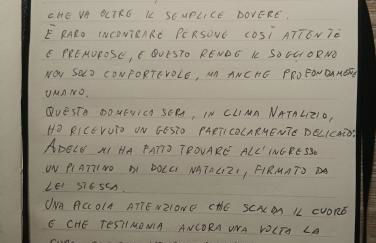 CHE VA OLTRE IL SEMPLICE DOVERE.
È RARO INCONTRARE PERSONE COSÌ ATTENTE
E PREMUROSE, E QUESTO RENDE IL SOGGIORNO
NON SOLO CONFORTEVOLE, MA ANCHE PROFONDAMENTE
UMANO.
QUESTA DOMENICA SERA, IN CLIMA NATALIZIO,
HO RICEVUTO UN GESTO PARTICOLARMENTE DELICATO:
ADELE MI HA FATTO TROVARE ALL'INGRESSO
UN PIATTINO DI DOLCI NATALIZI, FIRMATO DA
LEI STESSA.
UNA PICCOLA ATTENZIONE CHE SCALDA IL CUORE
E CHE TESTIMONIA ANCORA UNA VOLTA LA